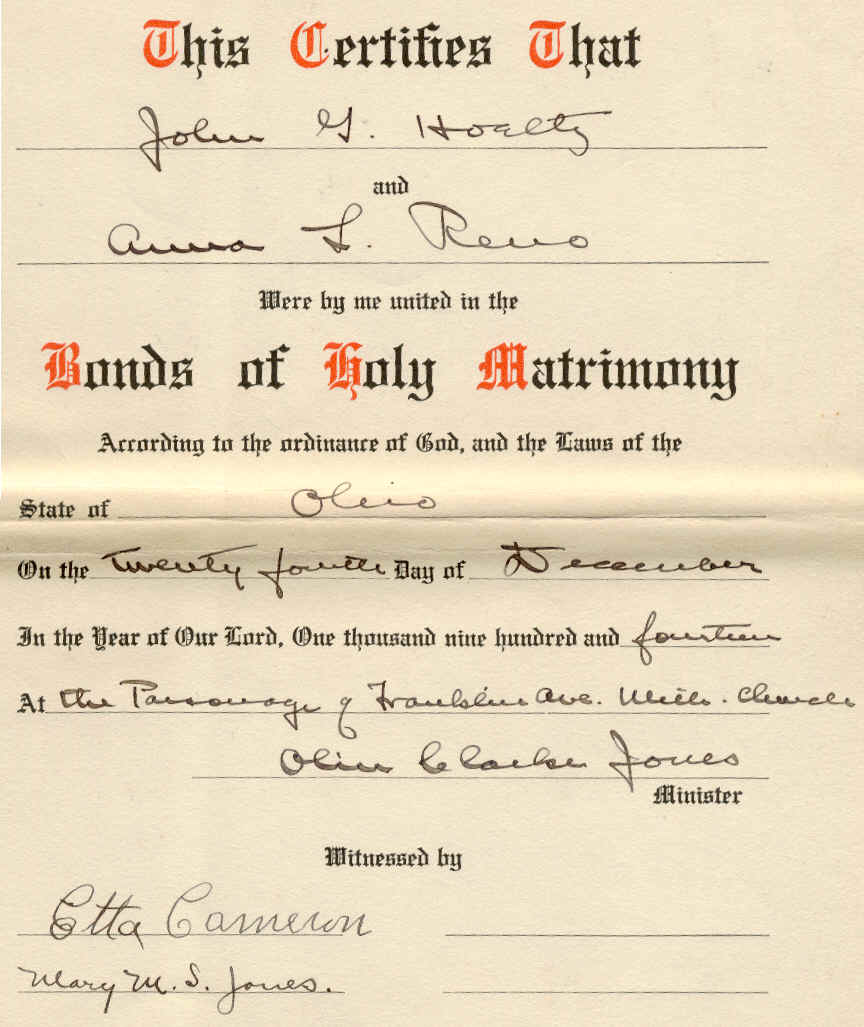 This Certifies That
John G. Hoelty
and
Anna L. Reno
Were by me united in the
Bonds of Holy Matrimony
According to the ordinance of God, and the Laws of the
State of Ohio
On the twenty fourth Day of December
In the Year of Our Lord, One thousand nine hundred and fourteen
At the Parsonage of Franklin Ave. Meth. Church
Olin Clarke Jones
Minister
Witnessed by
Etta Cameron
Mary M. S. Jones.